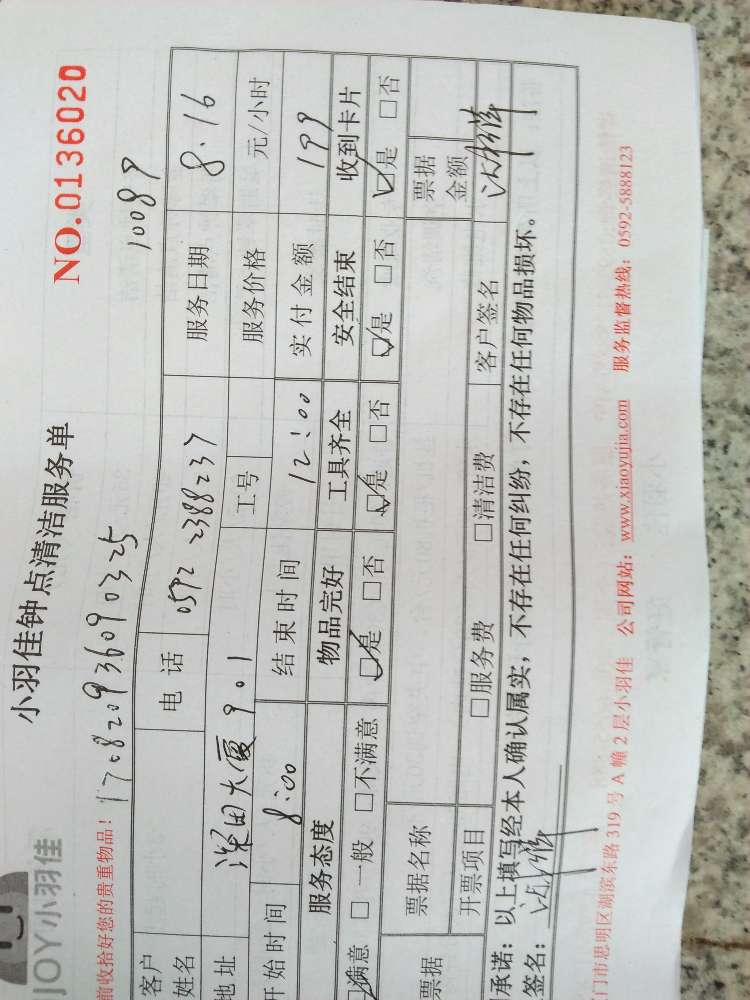 JOY小羽佳
小羽佳钟点清洁服务单
NO.0136020
前收拾好您的贵重物品! 170820936090325 10089
客户姓名 电话 0592 2388237 服务日期 8.16
地址 深田大厦901 工号 服务价格 元/小时
开始时间 8:00 结束时间 12:00 实付金额 199
服务态度 物品完好 工具齐全 安全结束 收到卡片
☑满意 □一般 □不满意 ☑是 □否 ☑是 □否 ☑是 □否 ☑是 □否
票据 票据名称 票据金额
开票项目 □服务费 □清洁费 客户签名
承诺:以上填写经本人确认属实,不存在任何纠纷,不存在任何物品损坏。
签名:
门市思明区湖滨东路 319 号 A 幢 2 层小羽佳 公司网站: www.xiaoyujia.com 服务监督热线: 0592-5888123